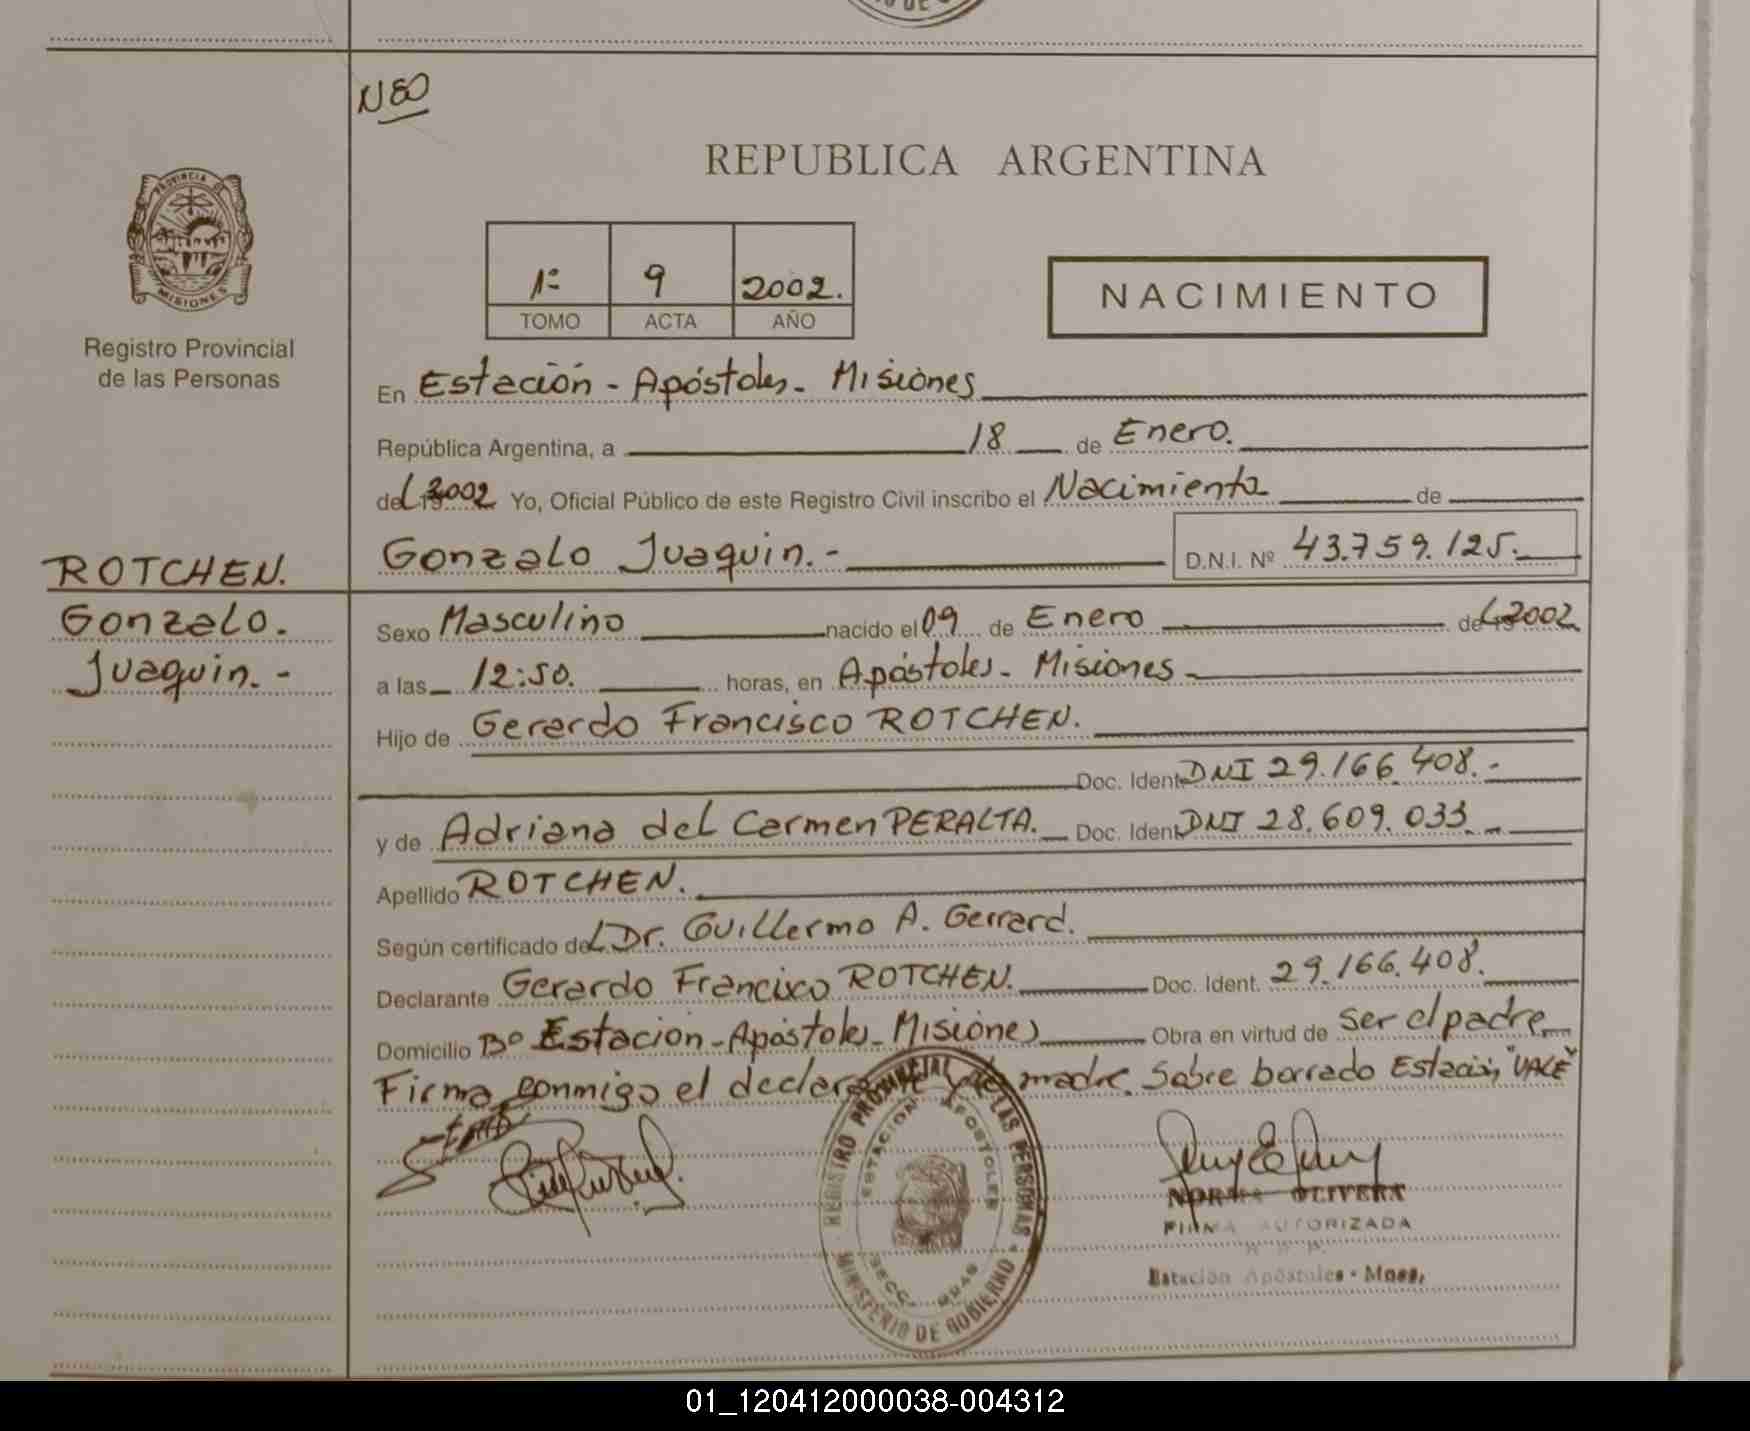 N80
PROVINCIA DE
MISIONES
Registro Provincial
de las Personas
REPUBLICA ARGENTINA
1º 9 2002.
TOMO ACTA AÑO
NACIMIENTO
En Estación - Apóstoles - Misiones
República Argentina, a 18 de Enero.
del 2002 Yo, Oficial Público de este Registro Civil inscribo el Nacimiento de
Gonzalo Juaquin.- D.N.I. Nº 43.759.125.
ROTCHEN.
Gonzalo.
Juaquin.-
Sexo Masculino nacido el 09 de Enero del 2002
a las 12:50. horas, en Apóstoles - Misiones
Hijo de Gerardo Francisco ROTCHEN.
Doc. Ident. DNI 29.166.408.-
y de Adriana del Carmen PERALTA. Doc. Ident. DNI 28.609.033.-
Apellido ROTCHEN.
Según certificado del Dr. Guillermo A. Gerrard.
Declarante Gerardo Francisco ROTCHEN. Doc. Ident. 29.166.408.
Domicilio Bº Estación - Apóstoles - Misiones Obra en virtud de ser el padre
Firma conmigo el declarante y la madre. Sobre borrado Estación, "VALE"
REGISTRO PROVINCIAL DE LAS PERSONAS
MINISTERIO DE GOBIERNO
ESTACION APOSTOLES
SECC.
NORMA OLIVERA
FIRMA AUTORIZADA
Estación Apóstoles - Mnes.
01_120412000038-004312